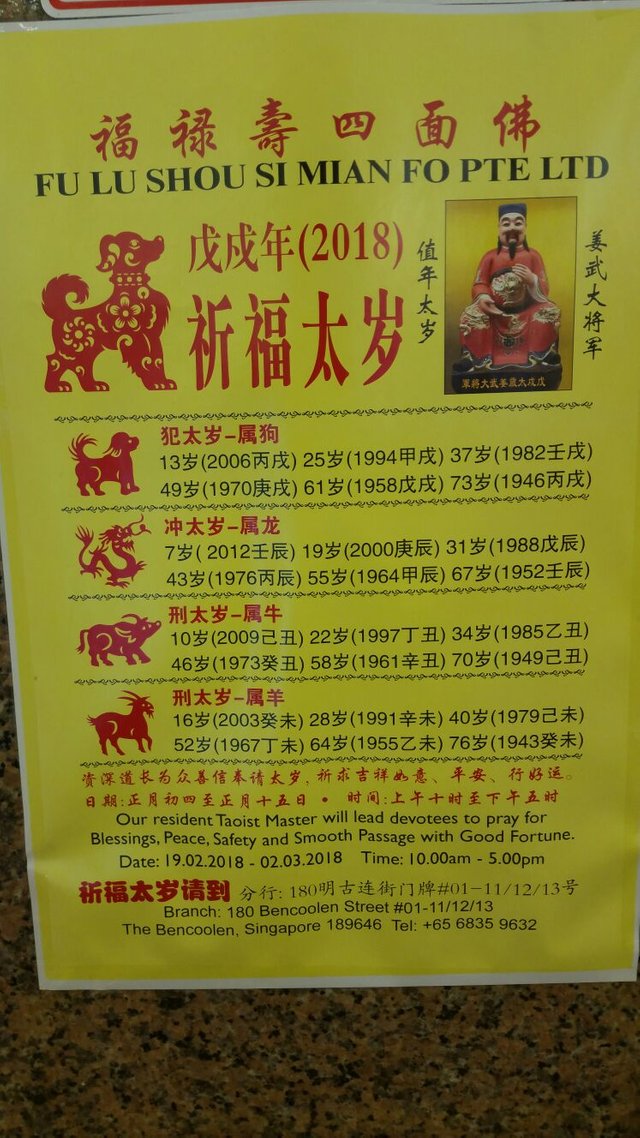 福禄壽四面佛
FU LU SHOU SI MIAN FO PTE LTD
戊戌年(2018)
祈福太岁
值年太岁
姜武大将军
軍將大武姜歲太戌戊
犯太岁-属狗
13岁(2006丙戌) 25岁(1994甲戌) 37岁(1982壬戌)
49岁(1970庚戌) 61岁(1958戊戌) 73岁(1946丙戌)
冲太岁-属龙
7岁( 2012壬辰) 19岁(2000庚辰) 31岁(1988戊辰)
43岁(1976丙辰) 55岁(1964甲辰) 67岁(1952壬辰)
刑太岁-属牛
10岁(2009己丑) 22岁(1997丁丑) 34岁(1985乙丑)
46岁(1973癸丑) 58岁(1961辛丑) 70岁(1949己丑)
刑太岁-属羊
16岁(2003癸未) 28岁(1991辛未) 40岁(1979己未)
52岁(1967丁未) 64岁(1955乙未) 76岁(1943癸未)
资深道长为众善信奉请太岁,祈求吉祥如意、平安、行好运。
日期:正月初四至正月十五日 • 时间:上午十时至下午五时
Our resident Taoist Master will lead devotees to pray for
Blessings, Peace, Safety and Smooth Passage with Good Fortune.
Date: 19.02.2018 - 02.03.2018 Time: 10.00am - 5.00pm
祈福太岁请到 分行: 180明古连街门牌#01-11/12/13号
Branch: 180 Bencoolen Street #01-11/12/13
The Bencoolen, Singapore 189646 Tel: +65 6835 9632